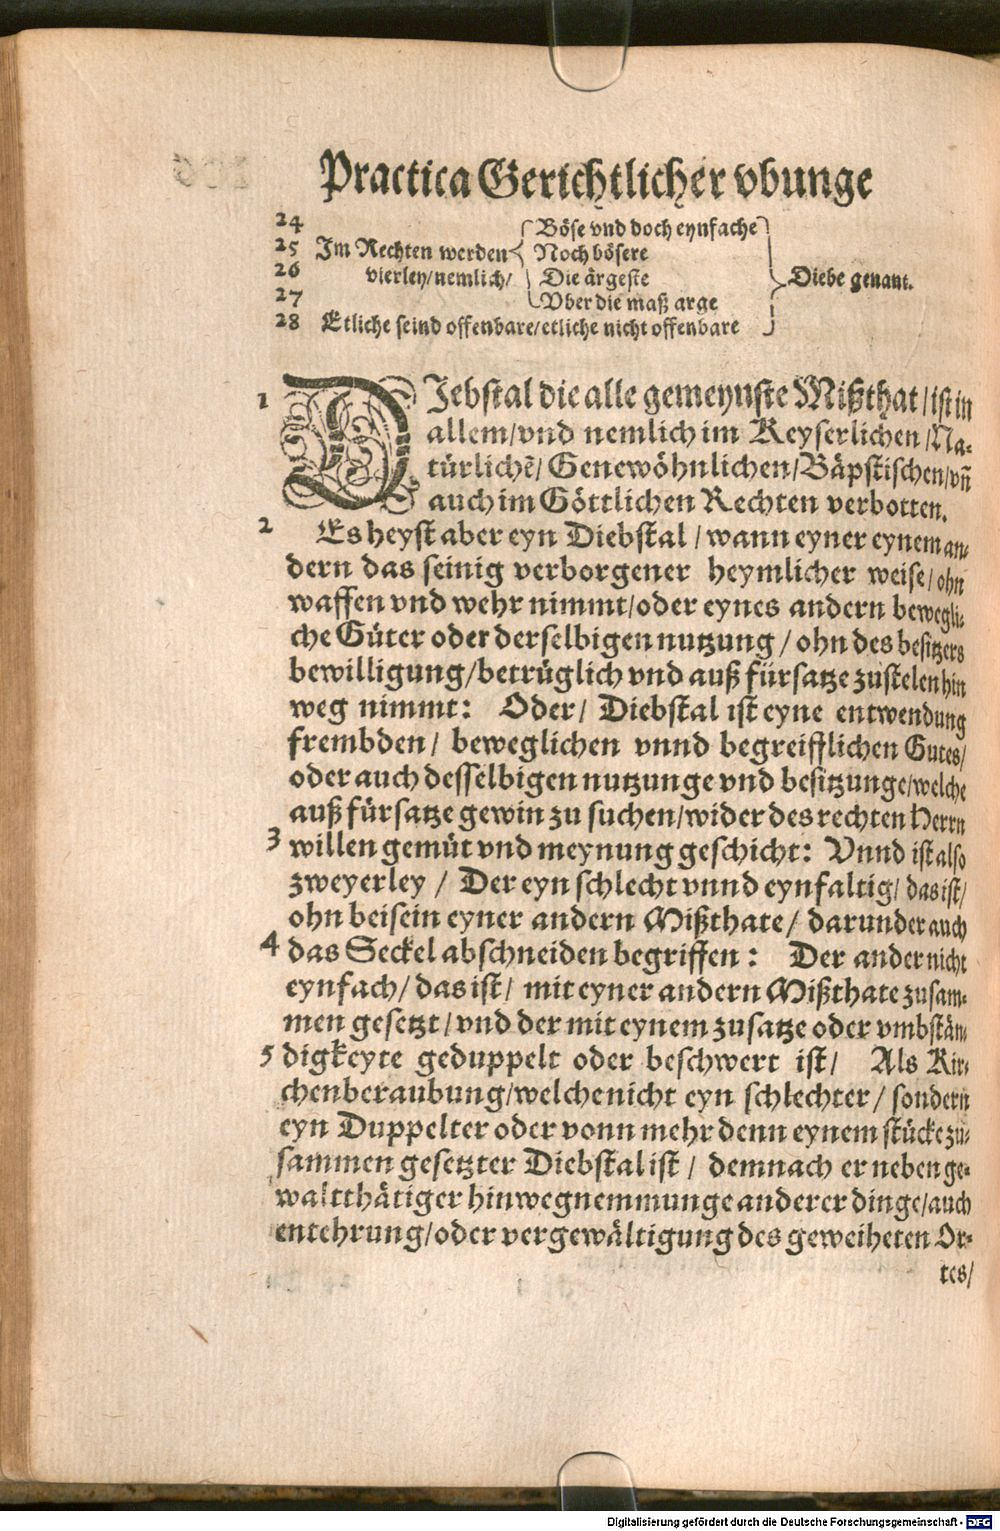 Practica Gerichtlicher vbunge
24 Böse vnd doch eynfache
25 Im Rechten werden Noch bösere
26 vierley/nemlich/ Die ärgeste Diebe genant.
27 Vber die maß arge
28 Etliche seind offenbare/etliche nicht offenbare
1 DJebstal die alle gemeynste Mißthat/ist in
allem/vnd nemlich im Keyserlichen/Na-
türlichē/Genewöhnlichen/Bäpstischen/vñ
auch im Göttlichen Rechten verbotten.
2 Es heyst aber eyn Diebstal/wann eyner eynem an-
dern das seinig verborgener heymlicher weise/ohn
waffen vnd wehr nimmt/oder eynes andern bewegli-
che Güter oder derselbigen nutzung/ohn des besitzers
bewilligung/betrüglich vnd auß fürsatze zustelen hin
weg nimmt: Oder/Diebstal ist eyne entwendung
frembden/beweglichen vnnd begreifflichen Gutes/
oder auch desselbigen nutzunge vnd besitzunge/welche
auß fürsatze gewin zu suchen/wider des rechten Herrn
3 willen gemüt vnd meynung geschicht: Vnnd ist also
zweyerley/Der eyn schlecht vnnd eynfaltig/das ist/
ohn beisein eyner andern Mißthate/darunder auch
4 das Seckel abschneiden begriffen: Der ander nicht
eynfach/das ist/mit eyner andern Mißthate zusam-
men gesetzt/vnd der mit eynem zusatze oder vmbstän-
5 digkeyte geduppelt oder beschwert ist/Als Kir-
chenberaubung/welche nicht eyn schlechter/sondern
eyn Duppelter oder vonn mehr denn eynem stücke zu-
sammen gesetzter Diebstal ist/demnach er neben ge-
waltthätiger hinwegnemmunge anderer dinge/auch
entehrung/oder vergewältigung des geweiheten Or-
tes/
Digitalisierung gefördert durch die Deutsche Forschungsgemeinschaft - DFG